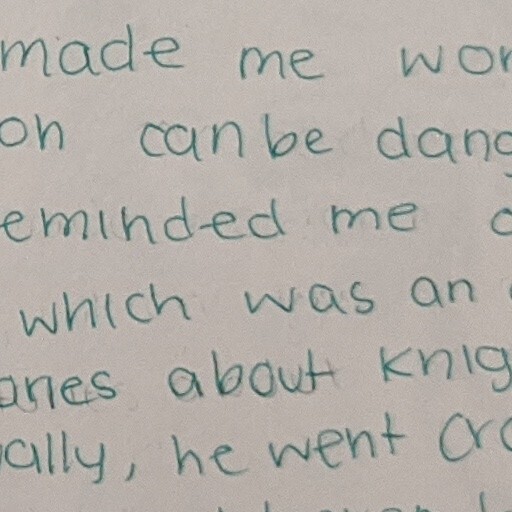 made me wor
on can be dang
eminded me o
which was an
ories about knig
ally, he went cra